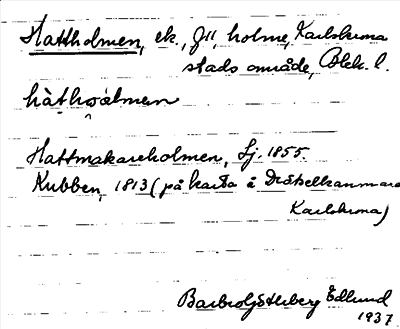 Hattholmen, ek., J11, holme, Karlskrona
stads område, Blek. l.
hàthòlmen
Hattmakareholmen, Sj. 1855.
Kubben, 1813 (på karta å Drätselkammare
Karlskrona)
Edlund
1937